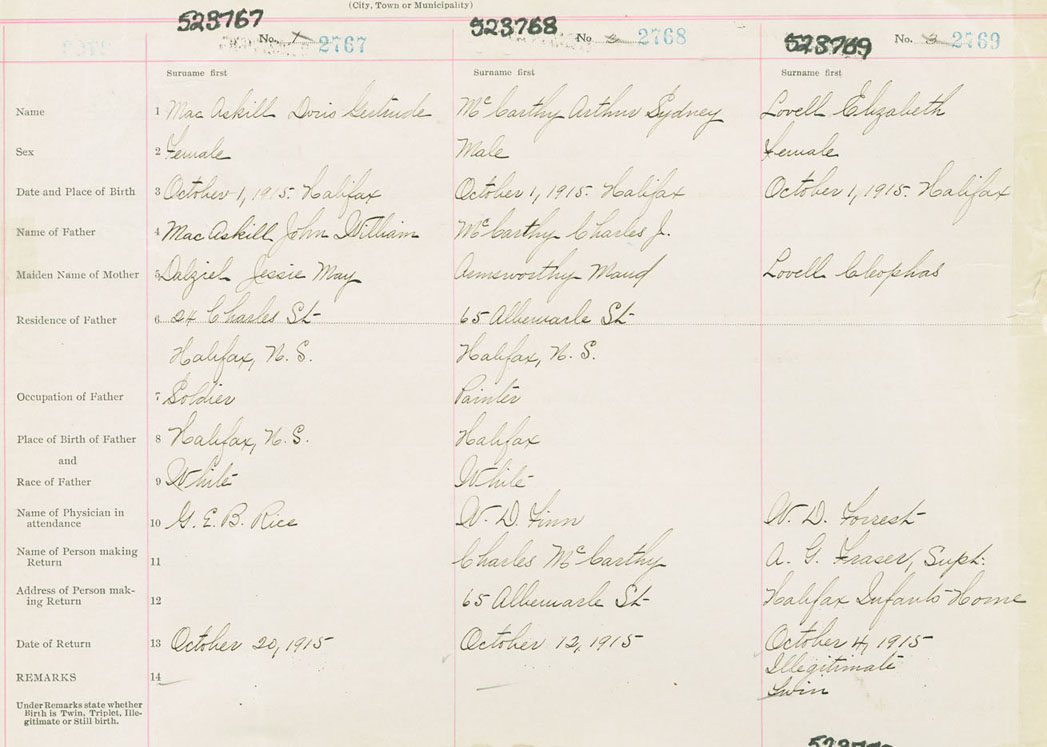 (City, Town or Municipality)
523767 No. 1 2767 523768 No 2 2768 523769 No. 3 2769
Surname first Surname first Surname first
Name 1 MacAskill Doris Gertrude McCarthy Arthur Sydney Lovell Elizabeth
Sex 2 Female Male Female
Date and Place of Birth 3 October 1, 1915. Halifax October 1, 1915. Halifax October 1, 1915. Halifax
Name of Father 4 MacAskill John William McCarthy Charles J.
Maiden Name of Mother 5 Dalziel Jessie May Maud Lovell Cleophas
Residence of Father 6 24 Charles St 65 Albemarle St
Halifax, N. S. Halifax, N. S.
Occupation of Father 7 Soldier Painter
Place of Birth of Father 8 Halifax, N. S. Halifax
and
Race of Father 9 White White
Name of Physician in
attendance 10 G. E. B. Rice W. D. Finn W. D. Forrest
Name of Person making
Return 11 Charles McCarthy A. G. Fraser, Supt.
Address of Person mak-
ing Return 12 65 Albemarle St Halifax Infants Home
Date of Return 13 October 20, 1915 October 12, 1915 October 4, 1915
Illegitimate
REMARKS 14 Twin
Under Remarks state whether
Birth is Twin, Triplet, Ille-
gitimate or Still birth.